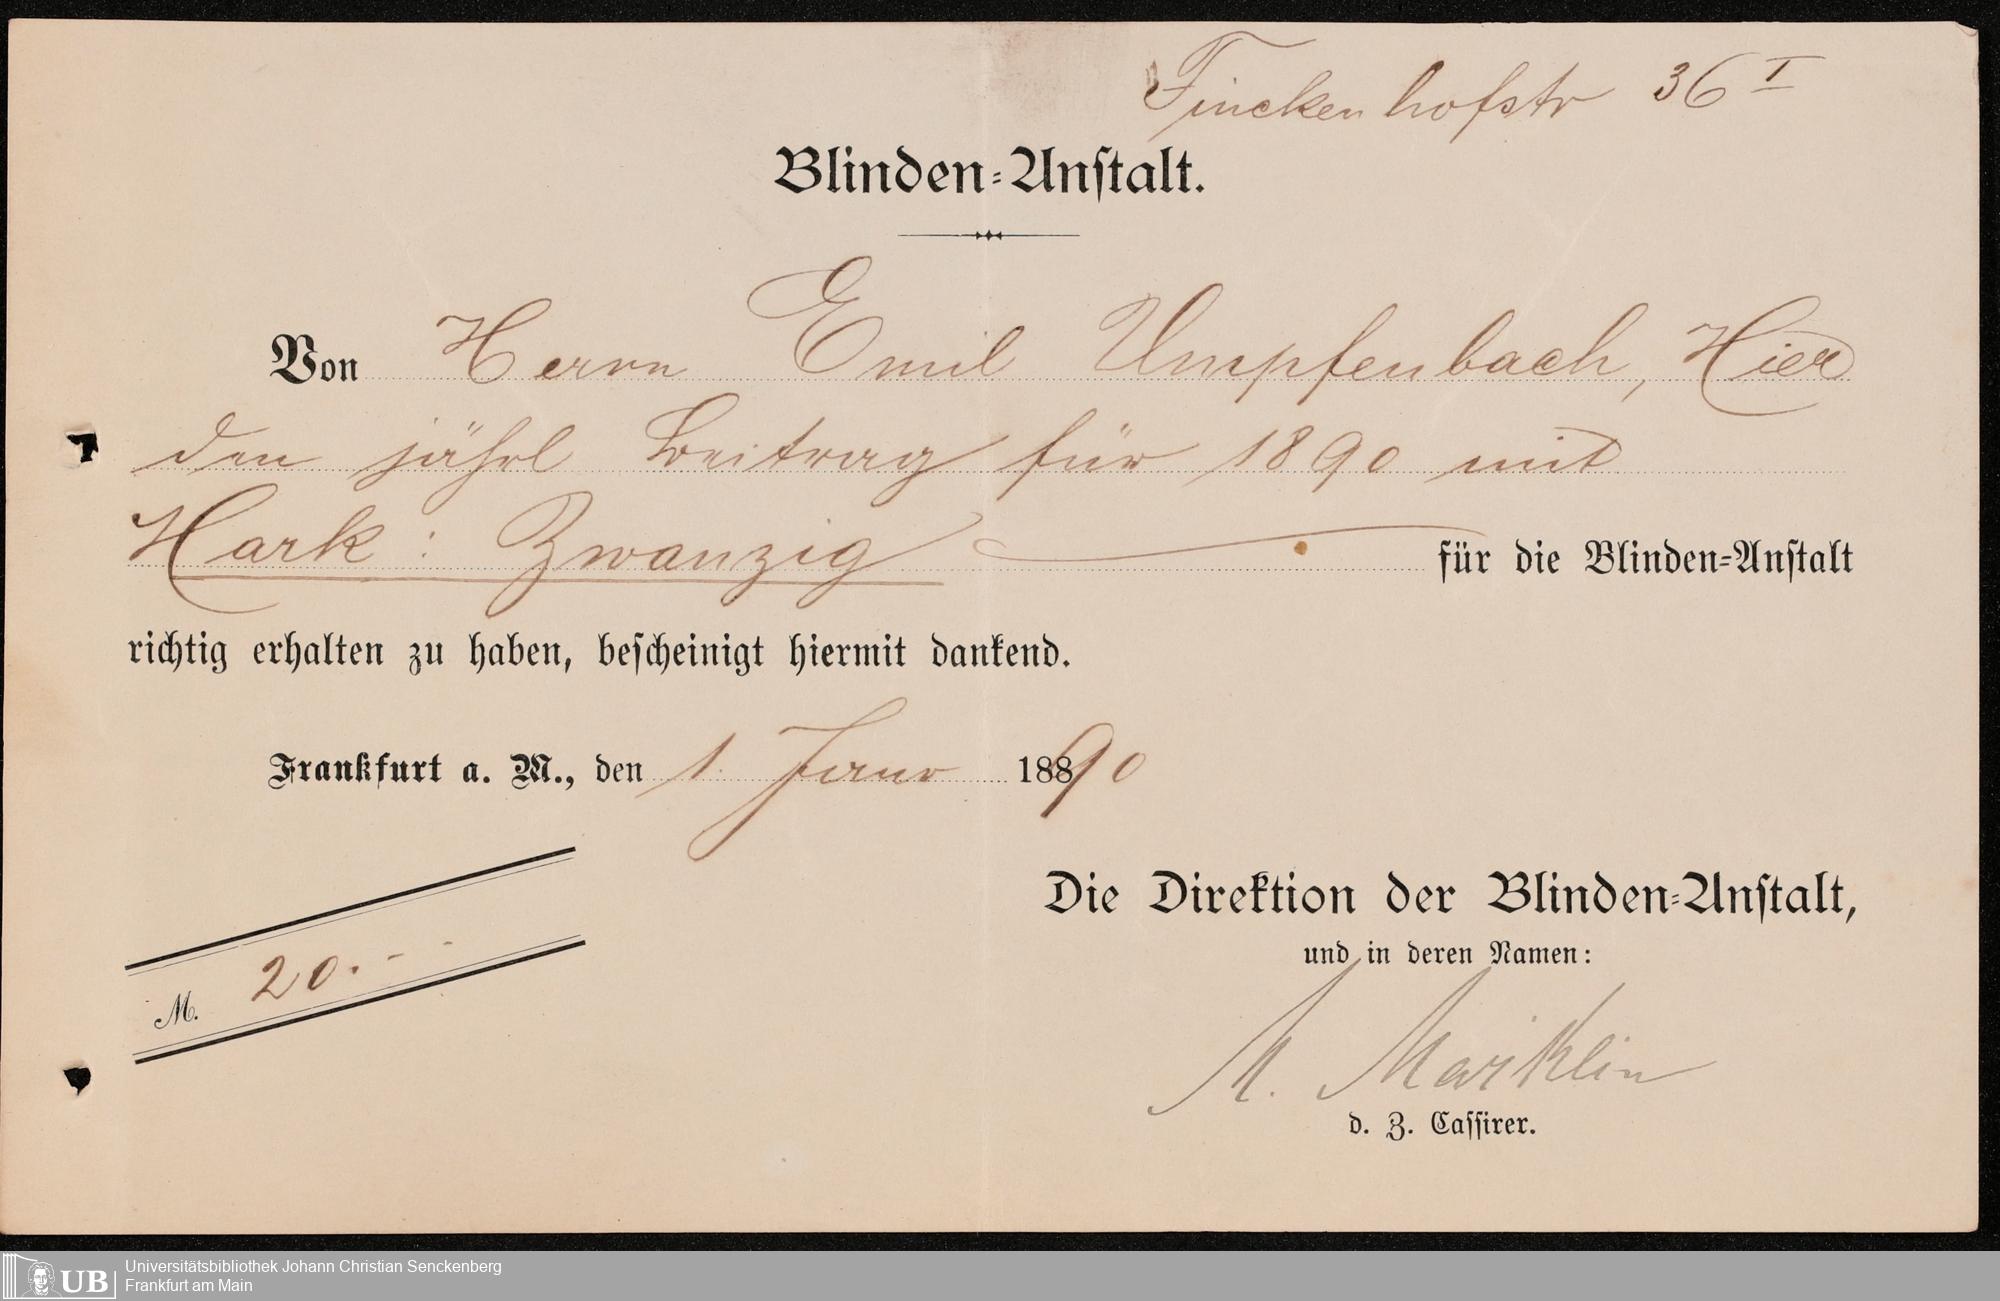 Finckenhofstr 36 I
Blinden-Anstalt.
Von Herrn Emil Umpfenbach, Hier
den jährl Beitrag für 1890 mit
Mark: Zwanzig für die Blinden-Anstalt
richtig erhalten zu haben, bescheinigt hiermit dankend.
Frankfurt a. M., den 1. Janr 18890
Die Direktion der Blinden-Anstalt,
M. 20.--
und in deren Namen:
d. Z. Cassirer.
UB Universitätsbibliothek Johann Christian Senckenberg
Frankfurt am Main